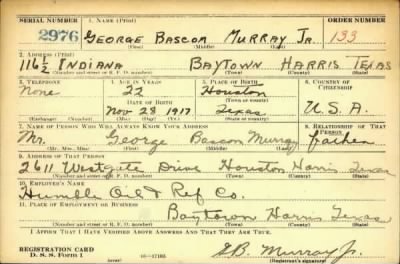 SERIAL NUMBER 1. NAME (Print) ORDER NUMBER
2976 GEORGE BASCOM MURRAY JR. 133
(First) (Middle) (Last)
2. ADDRESS (Print)
116½ INDIANA BAYTOWN HARRIS TEXAS
(Number and street or R. F. D. number) (Town) (County) (State)
3. TELEPHONE 4. AGE IN YEARS 5. PLACE OF BIRTH 6. COUNTRY OF CITIZENSHIP
None 22 Houston
(Town or county)
DATE OF BIRTH
Nov 28 1917 Texas U.S.A.
(Exchange) (No.) (Mo.) (Day) (Yr.) (State or country)
7. NAME OF PERSON WHO WILL ALWAYS KNOW YOUR ADDRESS 8. RELATIONSHIP OF THAT PERSON
Mr. George Bascom Murray father
(Mr., Mrs., Miss) (First) (Middle) (Last)
9. ADDRESS OF THAT PERSON
2611 Westgate Drive Houston Harris Texas
(Number and street or R. F. D. number) (Town) (County) (State)
10. EMPLOYER'S NAME
Humble Oil & Ref Co.
11. PLACE OF EMPLOYMENT OR BUSINESS
Baytown Harris Texas
(Number and street or R. F. D. number) (Town) (County) (State)
I AFFIRM THAT I HAVE VERIFIED ABOVE ANSWERS AND THAT THEY ARE TRUE.
REGISTRATION CARD
D. S. S. Form 1 16—17105 GB. Murray Jr.
(Registrant's signature)